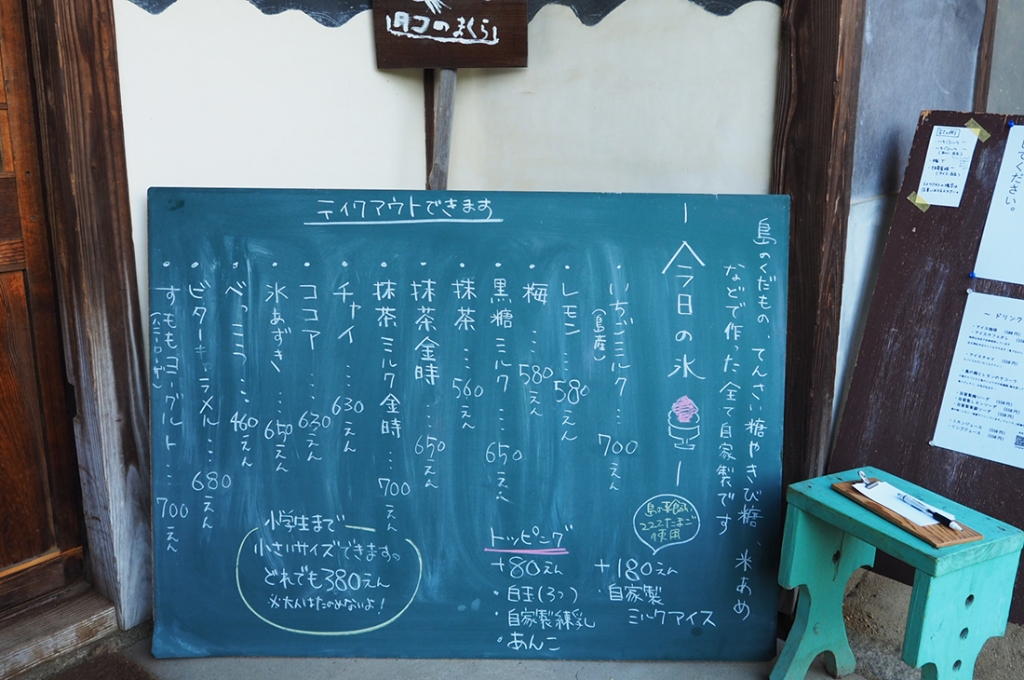 タコのまくら
テイクアウトできます
島のくだもの、てんさい糖やきび糖、米あめ
などで作った全て自家製です
ー今日の氷ー
・いちごミルク…700えん
(島産)
・レモン…580えん
・梅…580えん
・黒糖ミルク…650えん
・抹茶…560えん
・抹茶金時…650えん
・抹茶ミルク金時…700えん
・チャイ…630えん
・ココア…630えん
・氷あずき…650えん
・べっこう…460えん
・ビターキャラメル…680えん
・すももヨーグルト…700えん
小学生まで
小さいサイズできます。
どれでも380えん
※大人はたのめないよ!
トッピング
+80えん
・白玉(3つ)
・自家製練乳
・あんこ
+180えん
・自家製
ミルクアイス
使用
てください。
～ドリンク